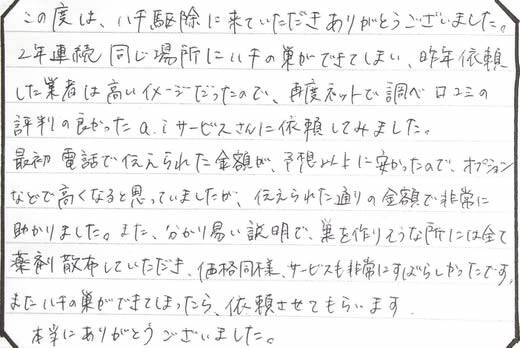 この度は、ハチ駆除に来ていただきありがとうございました。
2年連続 同じ場所にハチの巣ができてしまい、昨年依頼
した業者は高いイメージだったので、再度ネットで調べ口コミの
評判の良かったa.iサービスさんに依頼してみました。
最初 電話で伝えられた金額が、予想以上に安かったので、オプション
などで高くなると思っていましたが、伝えられた通りの金額で非常に
助かりました。また、分かり易い説明で、巣を作りそうな所には全て
薬剤散布していただき、価格同様、サービスも非常にすばらしかったです。
またハチの巣ができてしまったら、依頼させてもらいます.
本当にありがとうございました。